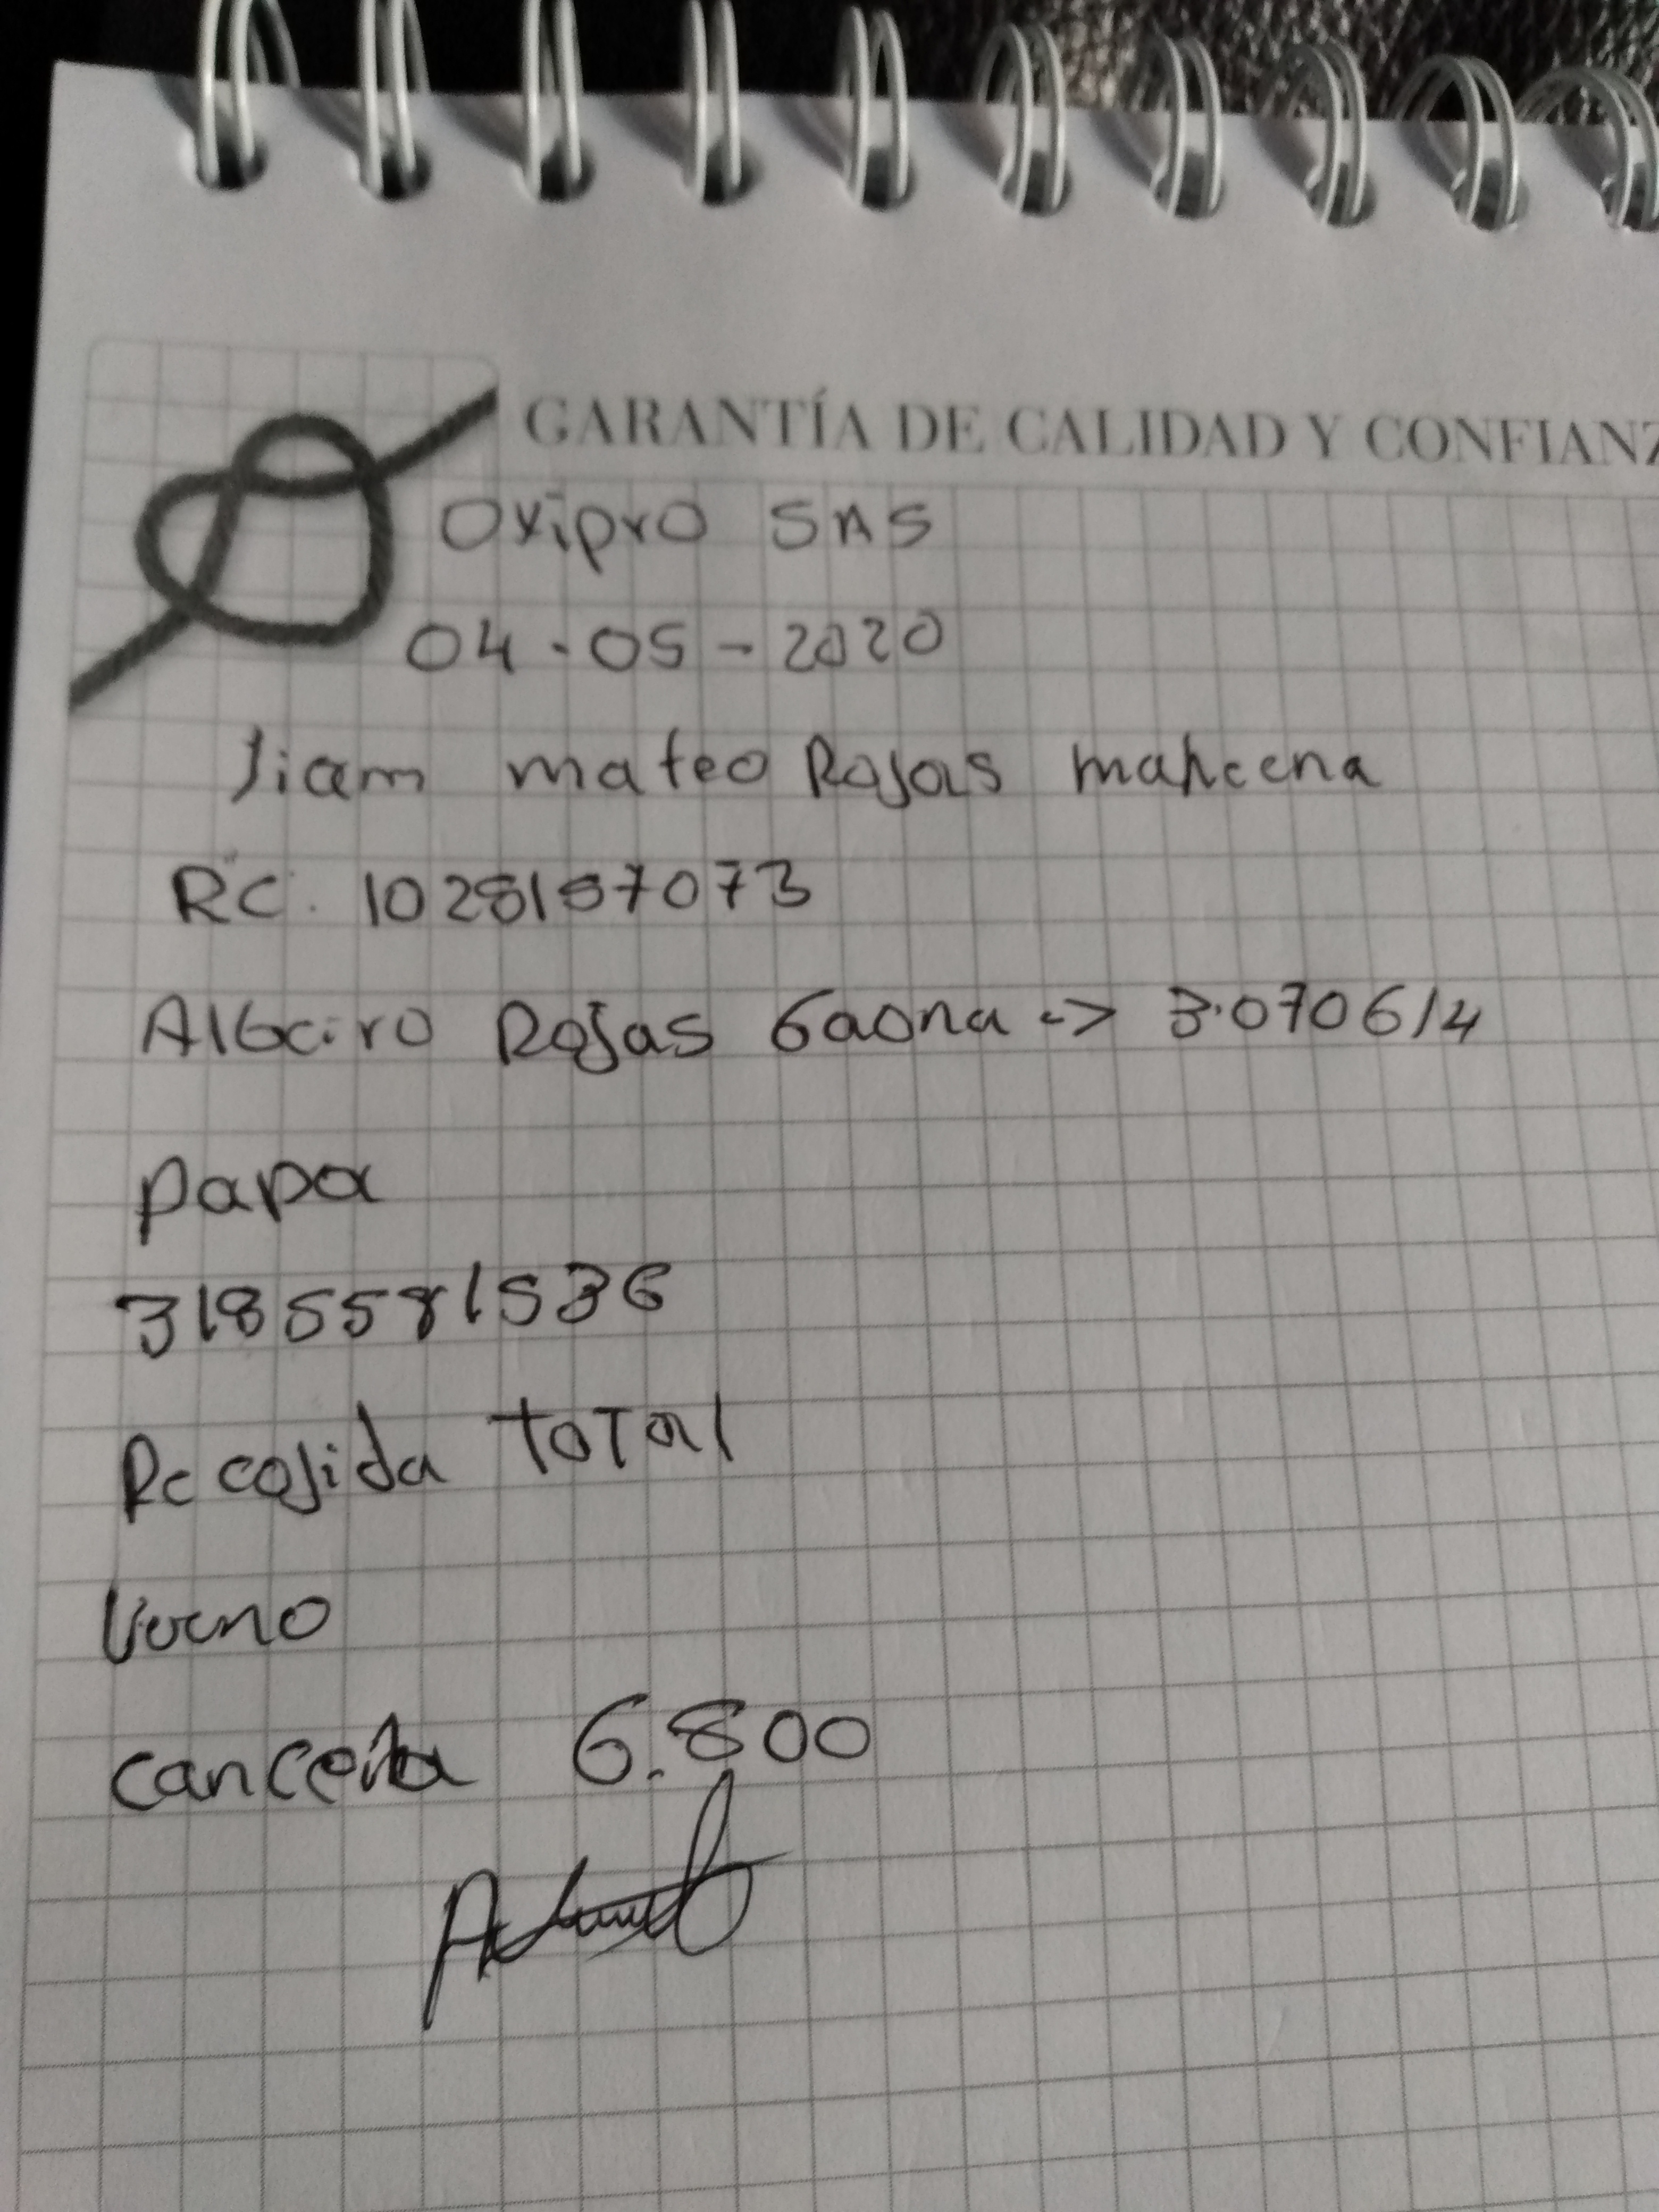 GARANTÍA DE CALIDAD Y CONFIANZ
Oxipro SAS
04-05-2020
Jiam mateo Rojas mahecha
RC. 1028187073
Albeiro Rojas Gaona -> 3.070614
papa
3185581536
Recojida TOTAL
cancela 6.800